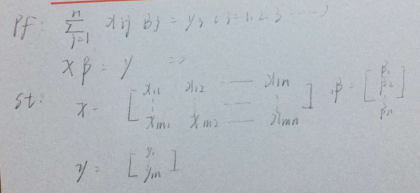 pf: n∑j=1 xij βj = yi, (i=1,2,3 ......)
Xβ = y =>
st: X = [ x11 x12 —— x1n ⋮ xm1 xm2 —— xmn ] , β = [ β1 β2 ⋮ βn ]
y = [ y1 ym ]